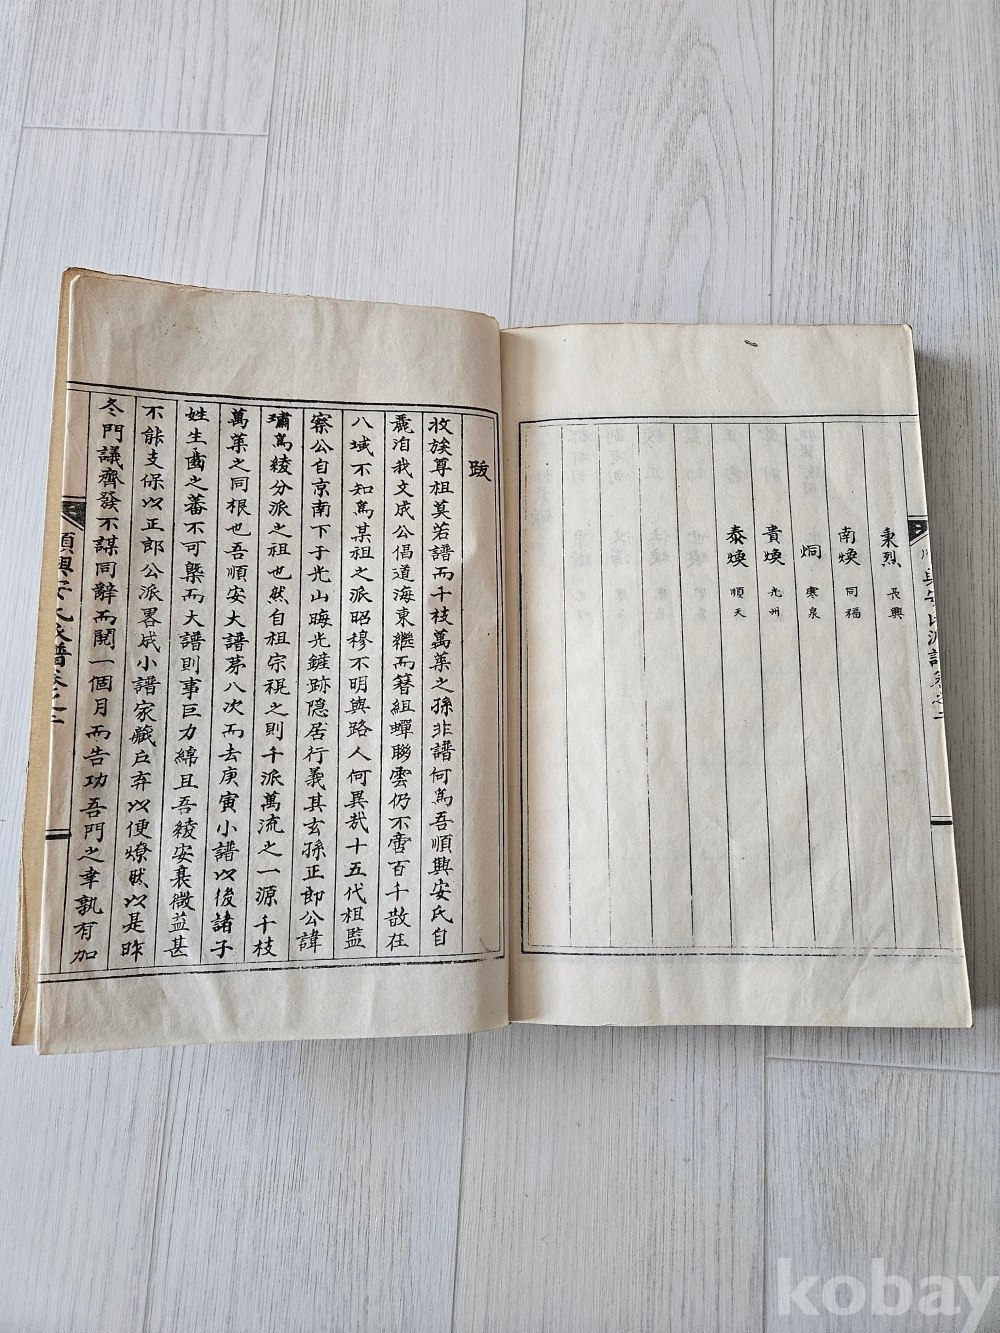 順興安氏派譜卷之二
秉烈 長興
南煥 同福
炯 寒泉
貴煥 光州
泰煥 順天
跋
收族尊祖莫若譜而千枝萬葉之孫非譜何爲吾順興安氏自
麗洎我文成公倡道海東繼而簪組蟬聯雲仍不啻百千散在
八域不知爲某祖之派昭穆不明與路人何異哉十五代祖監
察公自京南下于光山晦光鏟跡隐居行義其玄孫正郎公諱
璛爲綾分派之祖也然自祖宗視之則千派萬流之一源千枝
萬葉之同根也吾順安大譜苐八次而去庚寅小譜以後諸子
姓生齒之蕃不可槩而大譜則事巨力綿且吾綾安衰微益甚
不能支保以正郎公派畧成小譜家藏戶弃以便燎然以是昨
冬門議齊發不謀同辭而閱一個月而告功吾門之幸孰有加
順興安氏派譜卷之二
kobay